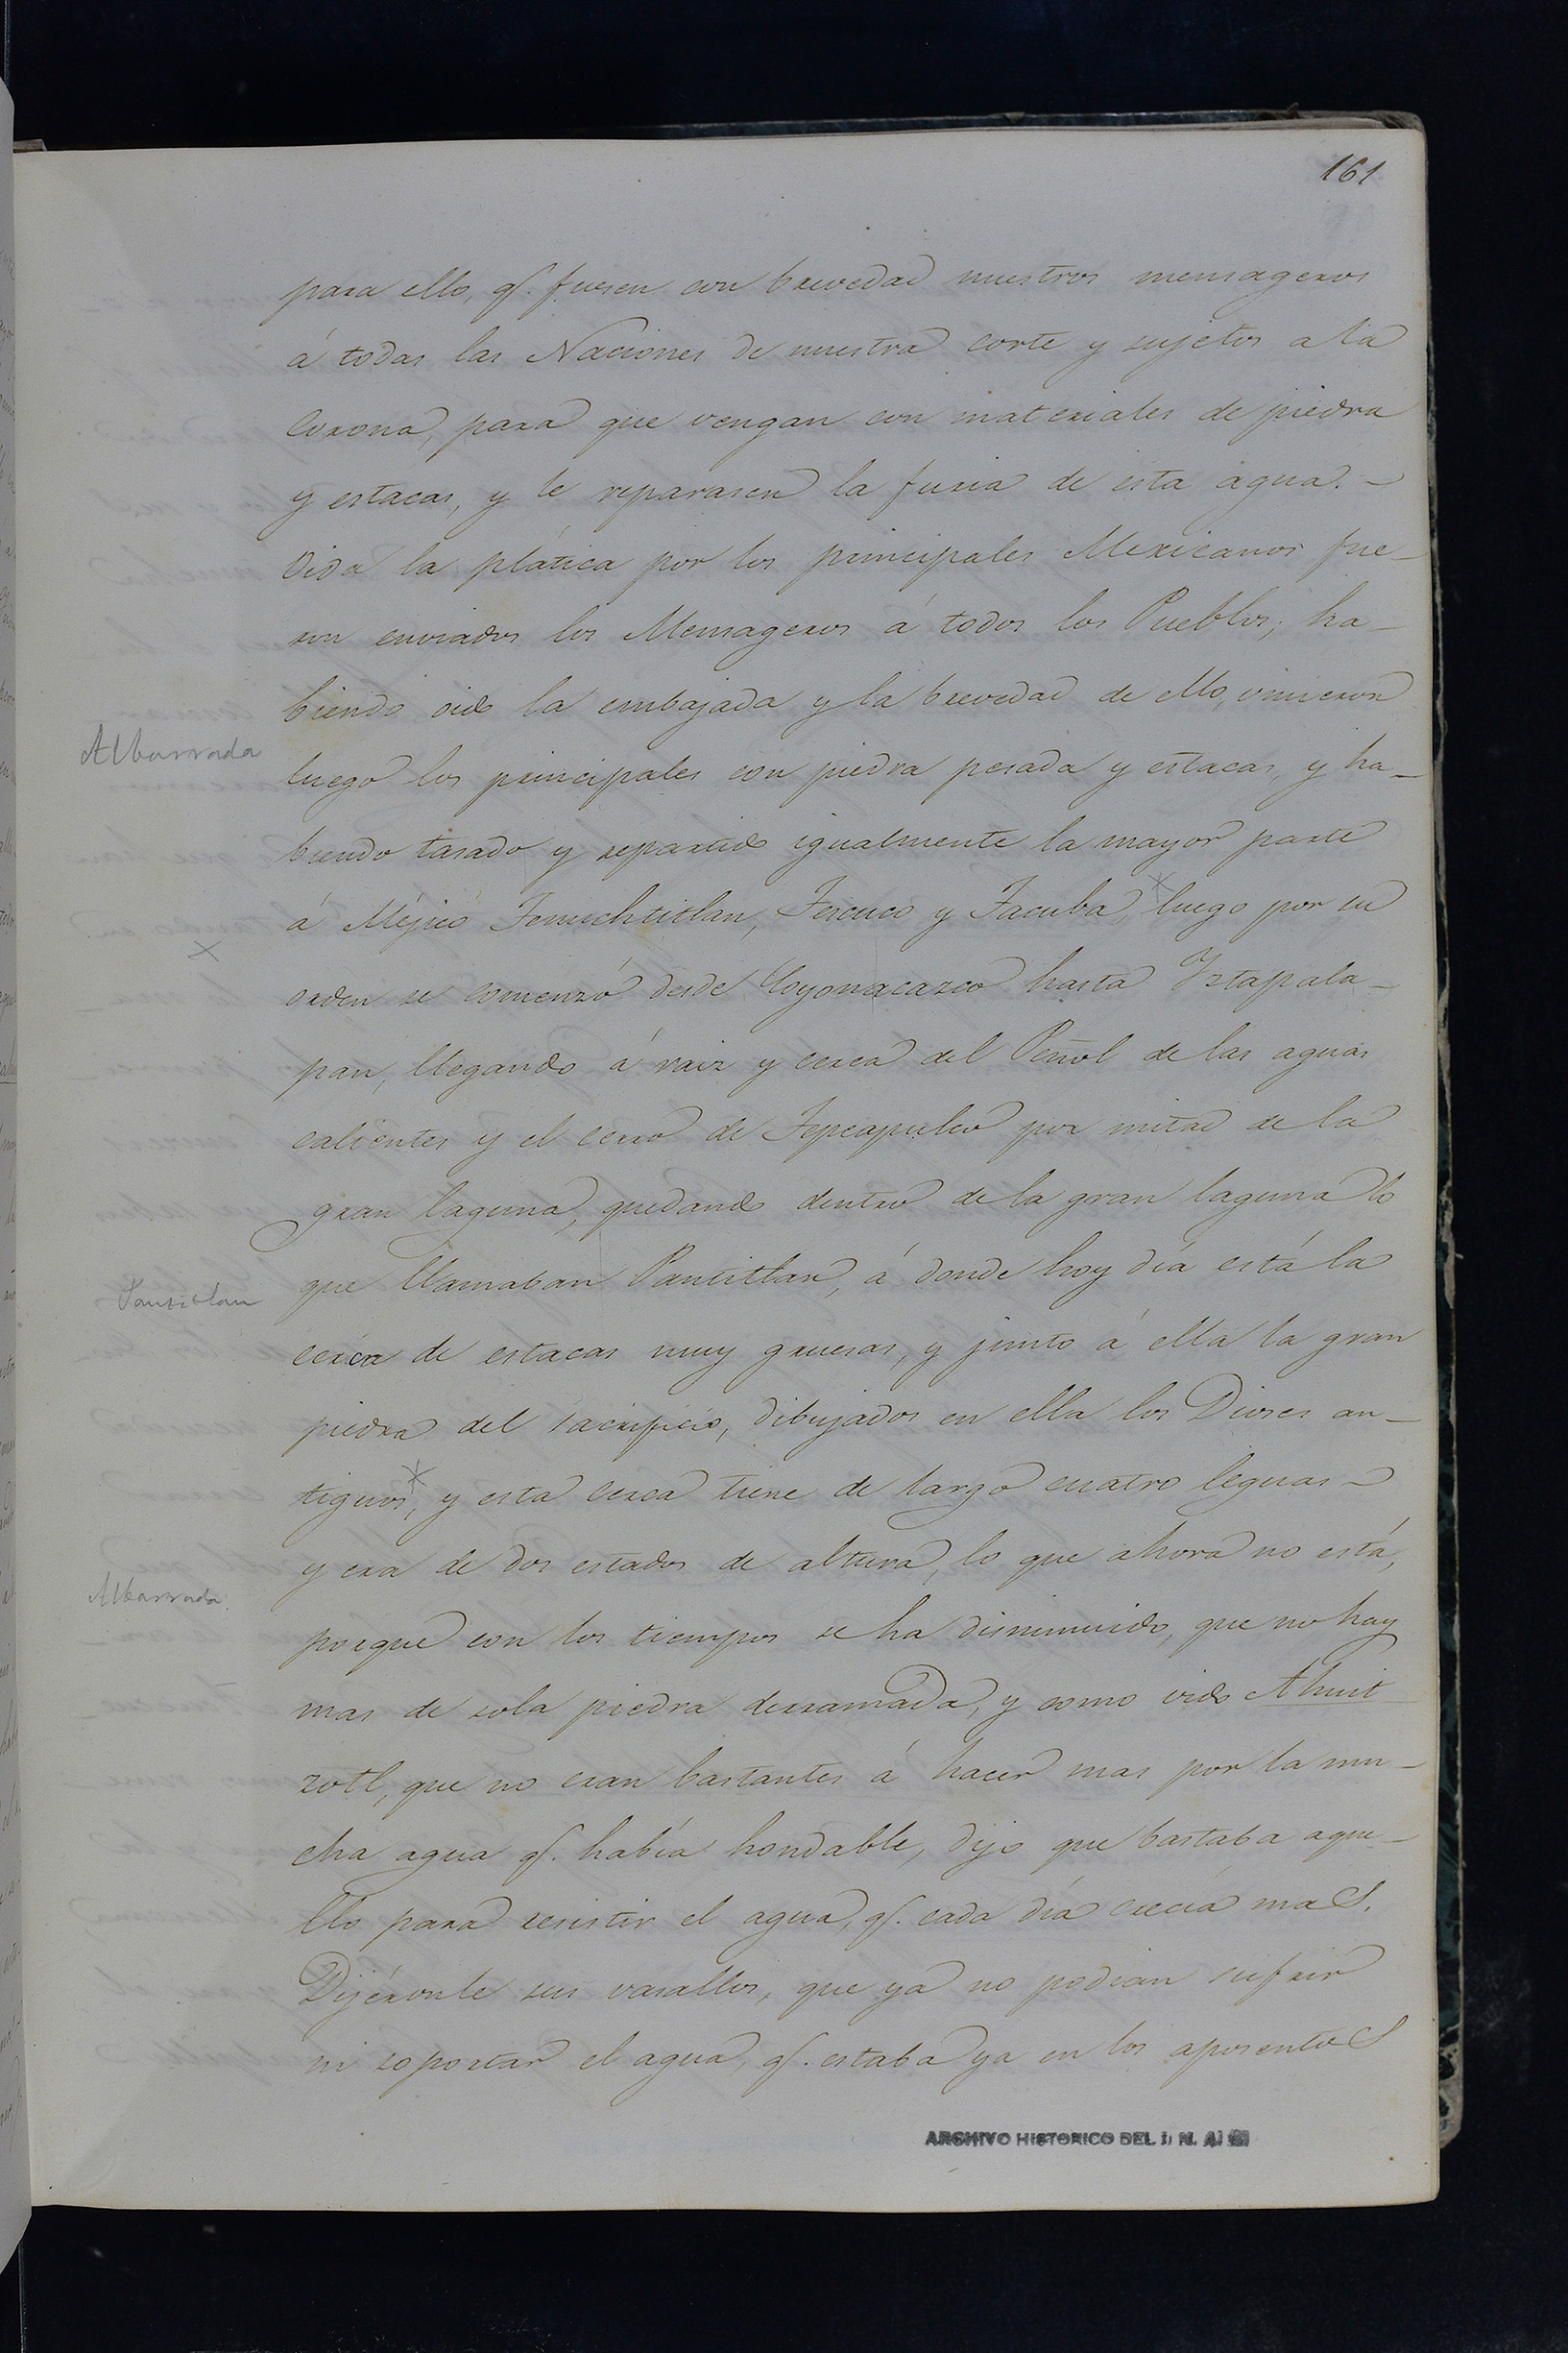 161
para ello, q.e fuesen con brevedad nuestros mensageros
á todas las Naciones de nuestra corte y sujetos a la
Corona, para que vengan con materiales de piedra
y estacas, y le reparasen la furia de esta agua. -
Oida la plática por los principales Mexicanos fue-
ron enviados los Mensageros á todos los Pueblos; ha-
biendo oido la embajada y la brevedad de ello, vinieron
Albarrada
luego los principales con piedra pesada y estacas, y ha-
biendo tasado y repartido igualmente la mayor parte
á Méjico Tenuchtitlan, Tescuco y Tacuba, * luego por su
x
orden se comenzó desde Coyonacazco hasta Iztapala-
pan, llegando á raiz y cerca del Peñol de las aguas
calientes y el cerro de Tepeapulco por mitad de la
gran laguna, quedando dentro de la gran laguna lo
que llamaban Pantitlan, á donde hoy día está la
Pantitlan
cerca de estacas muy gruesas, y junto á ella la gran
piedra del sacrificio, dibujados en ella los Dioses an-
tiguos *, y esta cerca tiene de largo cuatro leguas -
y era de dos estados de altura, lo que ahora no está,
Albarrada.
porque con los tiempos se ha disminuido, que no hay
mas de sola piedra derramada, y como vido Ahuit
zotl, que no eran bastantes á hacer mas por la mu-
cha agua q.e había hondable, dijo que bastaba aque-
llo para resistir el agua, q.e cada día crecía mas.
Dijéronle sus vasallos, que ya no podian sufrir
ni soportar el agua, q.e estaba ya en los aposentos
ARCHIVO HISTORICO DEL I. N. A.